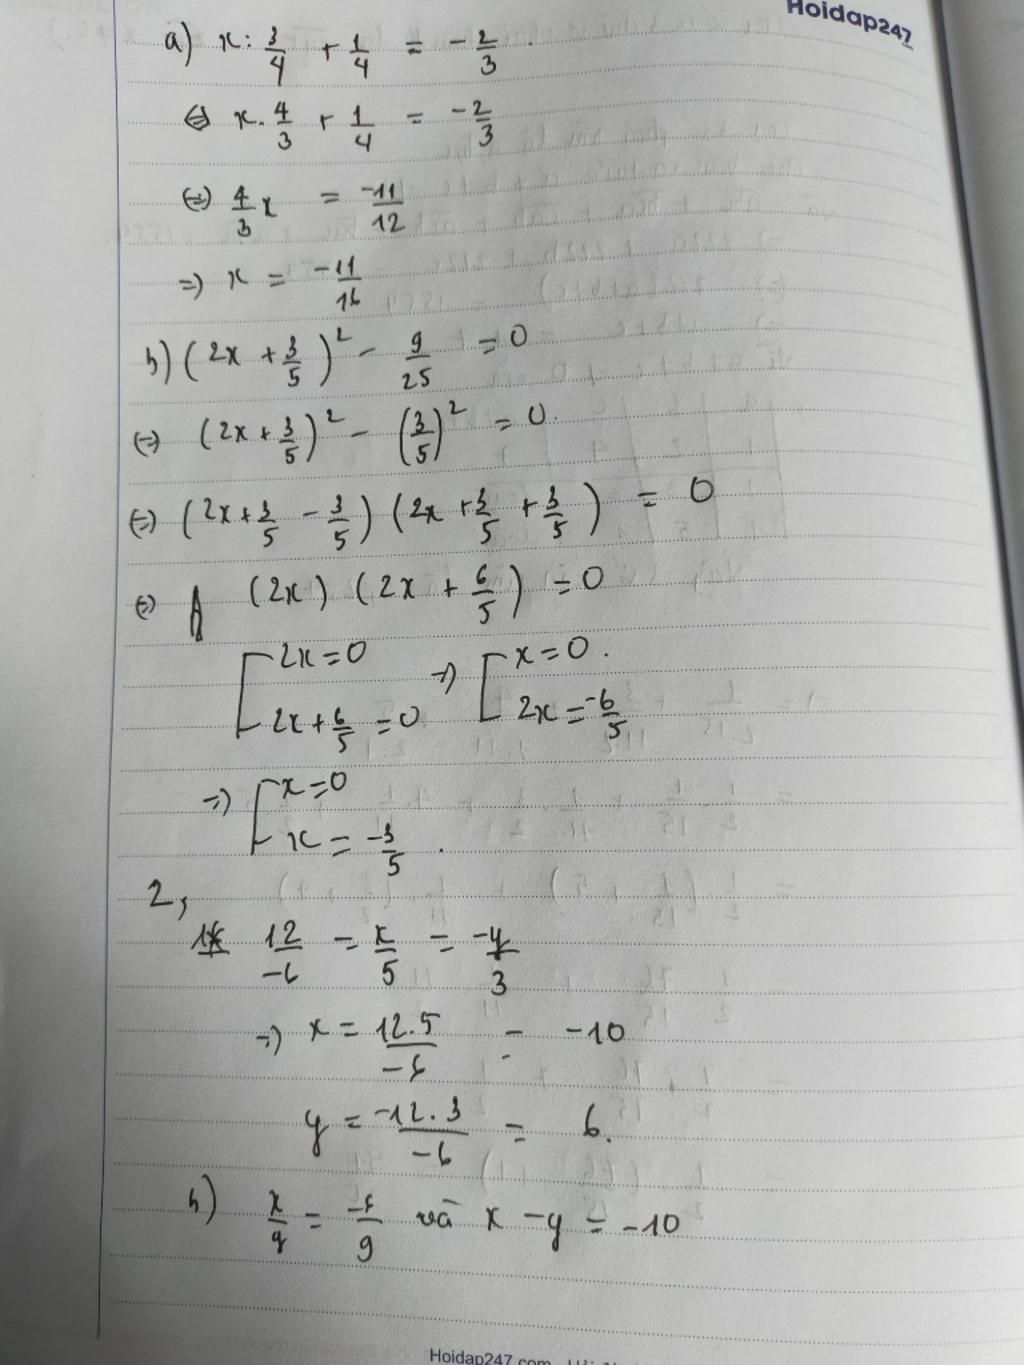 Hoidap247.com
a) x : 3/4 + 1/4 = -2/3.
⇔ x . 4/3 + 1/4 = -2/3
⇔ 4/3 x = -11/12
=) x = -11/16
b) (2x + 3/5)² - 9/25 = 0
⇔ (2x + 3/5)² - (3/5)² = 0.
⇔ (2x + 3/5 - 3/5) (2x + 3/5 + 3/5) = 0
⇔ (2x) (2x + 6/5) = 0
[ 2x = 0 =) [ x = 0.
2x + 6/5 = 0 2x = -6/5
=) [ x = 0
x = -3/5.
2,
12/-6 = x/5 = -y/3
=) x = 12.5/-6 = -10
y = -12.3/-6 = 6.
b) x/y = /9 và x - y = -10
Hoidap247.com